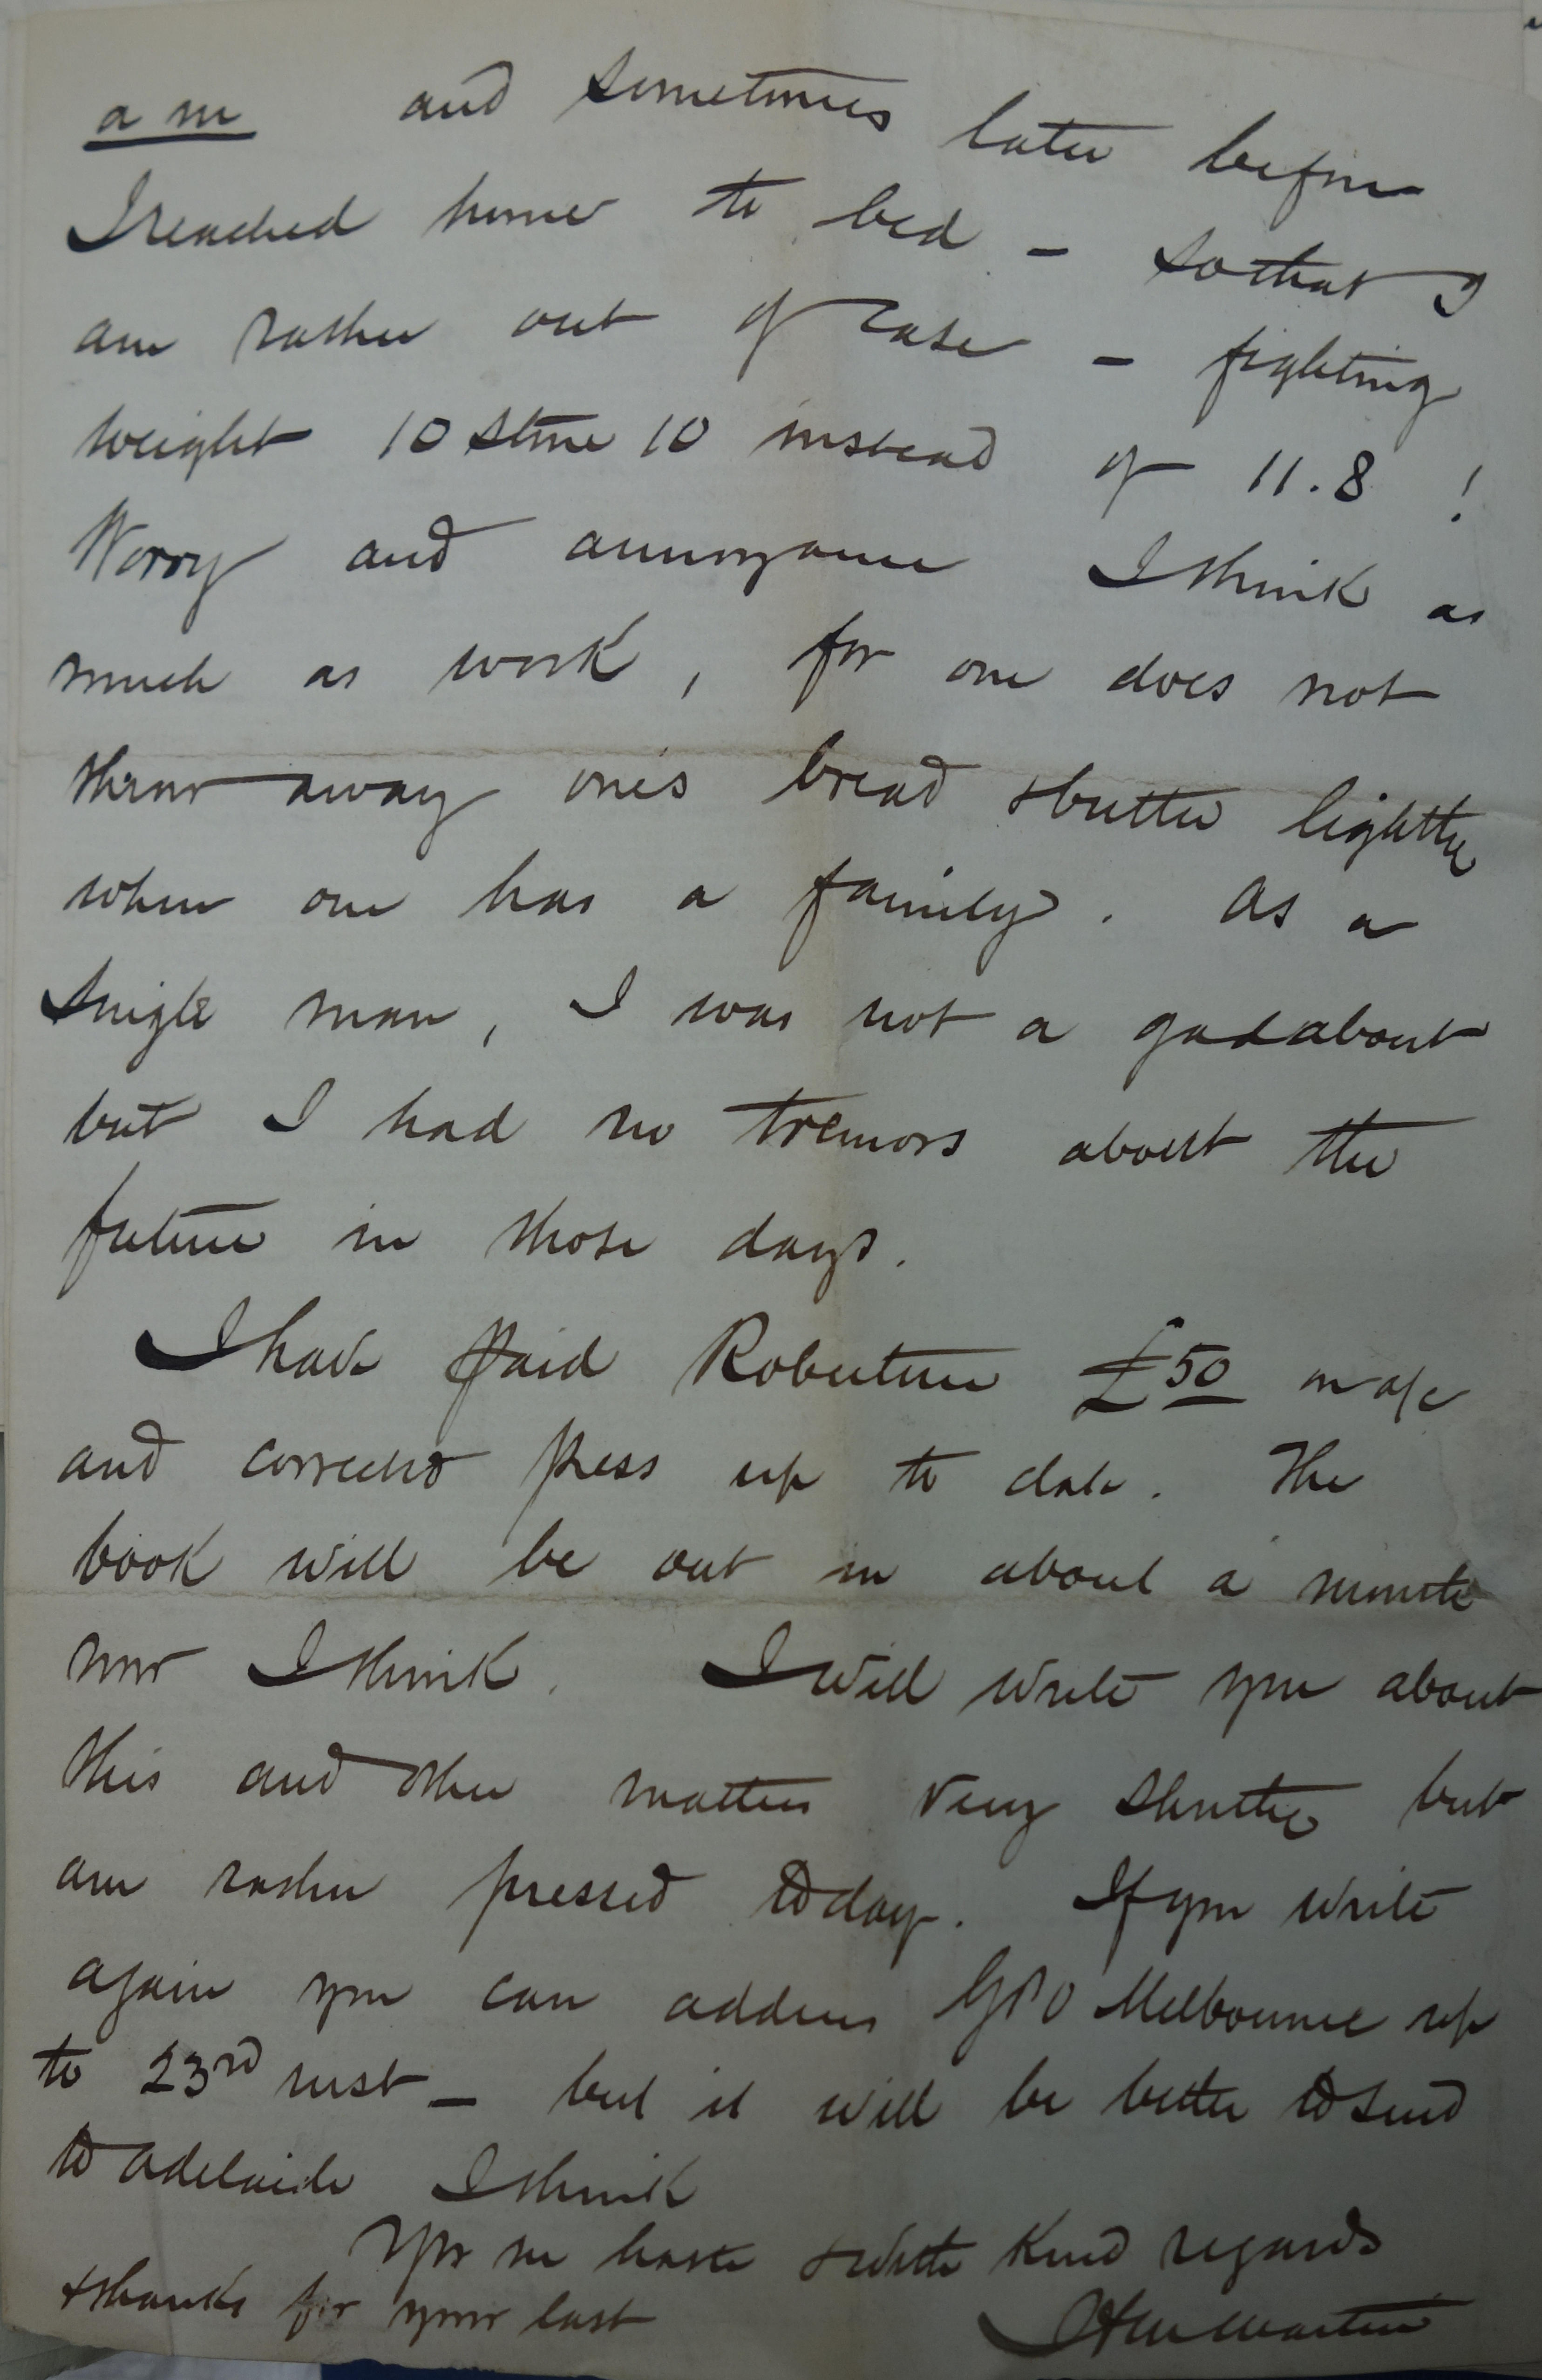 a m and sometimes later before
I reached home to bed – so that I
am rather out of case – fighting
weight 10 stone 10 instead of 11.8 !
Worry and annoyance I think as
much as work, for one does not
throw away one's bread & butter lightly
when one has a family. As a
single man, I was not a gadabout
but I had no tremors about the
future in those days.
I have paid Robertson £50 on a/c
and corrected press up to date. The
book will be out in about a month
now I think. I will write you about
this and other matters very shortly but
am rather pressed today. If you write
again you can address GPO Melbourne up
to 23rd inst – but it will be better to send
to Adelaide I think
Yrs in haste & with kind regards
& thanks for your last